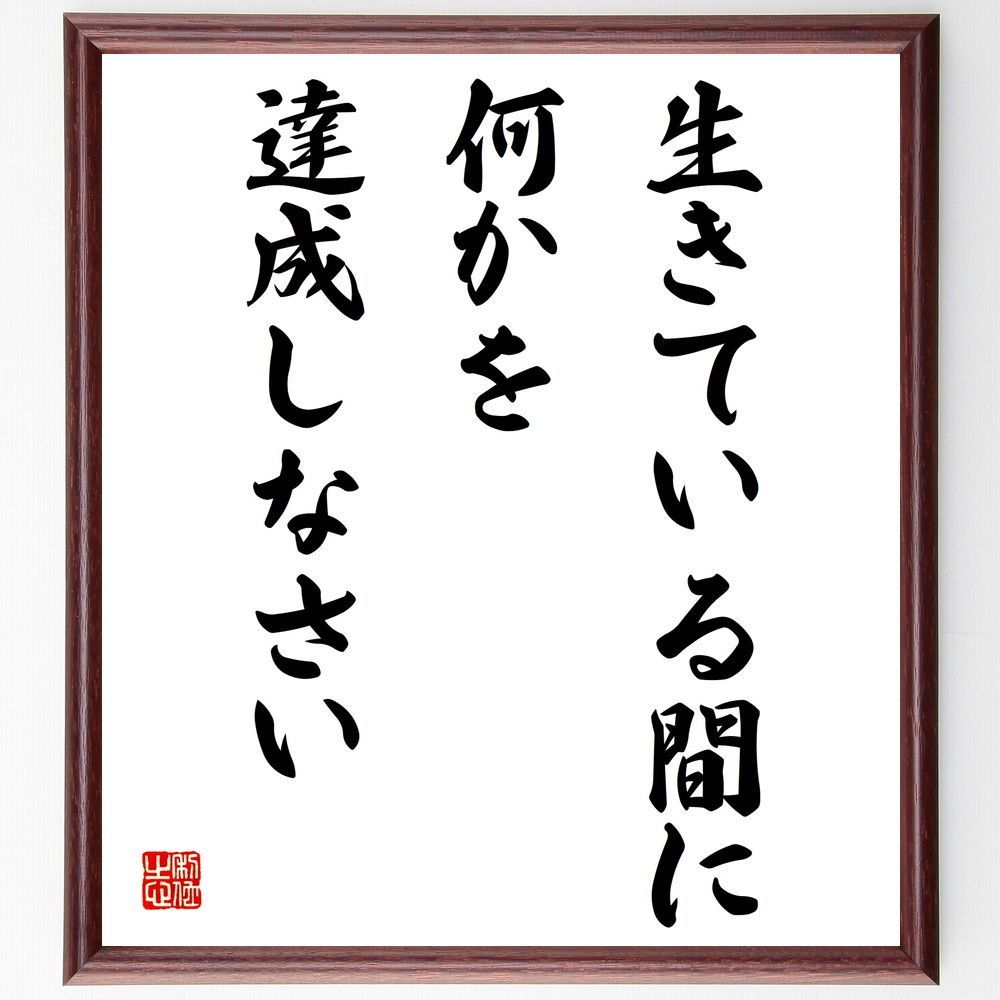 生きている間に
何かを
達成しなさい